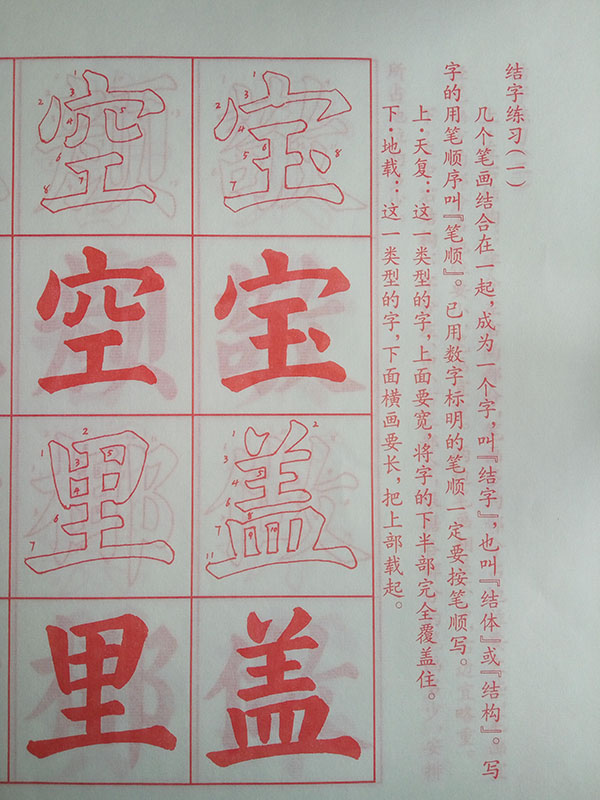 结字练习(一)
几个笔画结合在一起,成为一个字,叫『结字』,也叫『结体』或『结构』。写
字的用笔顺序叫『笔顺』。已用数字标明的笔顺一定要按笔顺写。
上·天复:这一类型的字,上面要宽,将字的下半部完全覆盖住。
下·地载:这一类型的字,下面横画要长,把上部载起。
宝
宝
盖
盖
空
空
里
里